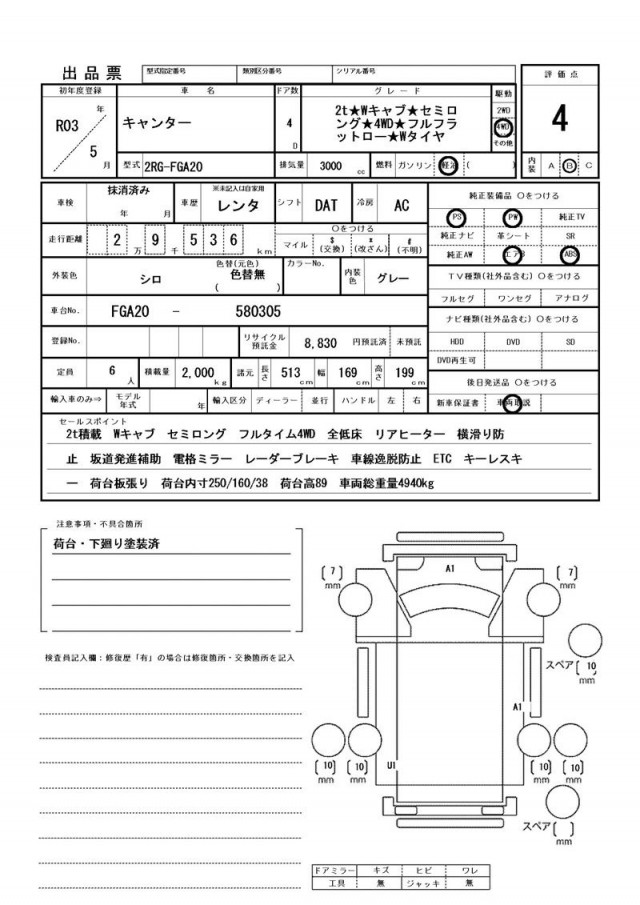 出品票 型式指定番号 類別区分番号 シリアル番号
評価点
初年度登録 車名 ドア数 グレード 駆動
R03 年 5 月
キャンター
4 D
2t★Wキャブ★セミロ
ング★4WD★フルフラ
ットロー★Wタイヤ
2WD
4WD
その他
4
型式 2RG-FGA20 排気量 3000 cc 燃料 ガソリン 軽油 ( )
内装 A B C
車検 抹消済み 年 月 車歴 ※未記入は自家用 レンタ シフト DAT 冷房 AC
純正装備品 ○をつける
PS PW 純正TV
走行距離 2 万 9 千 5 3 6 km
○をつける
マイル $(交換) *(改ざん) #(不明)
純正ナビ 革シート SR
純正AW エアB ABS
外装色 シロ 色替(元色) 色替無 ( ) カラーNo. 内装色 グレー
TV種類(社外品含む) ○をつける
フルセグ ワンセグ アナログ
車台No. FGA20 - 580305
ナビ種類(社外品含む) ○をつける
登録No. リサイクル預託金 8,830 円預託済 未預託
HDD DVD SD
DVD再生可
定員 6 人 積載量 2,000 kg 諸元 長さ 513 cm 幅 169 cm 高さ 199 cm
後日発送品 ○をつける
輸入車のみ⇒ モデル年式 年 輸入区分 ディーラー 並行 ハンドル 左 右
新車保証書 車両取説
セールスポイント
2t積載 Wキャブ セミロング フルタイム4WD 全低床 リアヒーター 横滑り防
止 坂道発進補助 電格ミラー レーダーブレーキ 車線逸脱防止 ETC キーレスキ
ー 荷台板張り 荷台内寸250/160/38 荷台高89 車両総重量4940kg
注意事項・不具合箇所
荷台・下廻り塗装済
検査員記入欄：修復歴「有」の場合は修復箇所・交換箇所を記入
A1
[7] mm
[7] mm
スペア [10] mm
A1
U1
[10] mm
[10] mm
[10] mm
[10] mm
スペア [ ] mm
ドアミラー キズ ヒビ ワレ
工具 無 ジャッキ 無